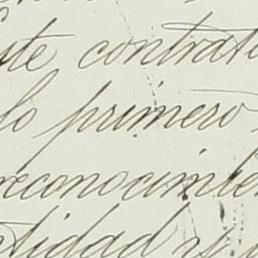 Este contrato
lo primero
reconocimien
tidad y